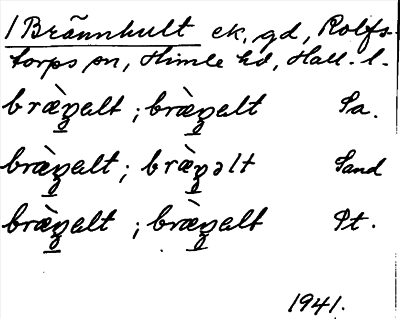 1 Brännhult ek, gd, Rolfs-
torps sn, Himle hd, Hall. l.
bræ̀n̲alt ; bræ̀n̲alt Sa.
bræ̀n̲alt ; bræ̀n̲əlt Sand
bræ̀n̲alt ; bræ̀n̲alt Pt.
1941.